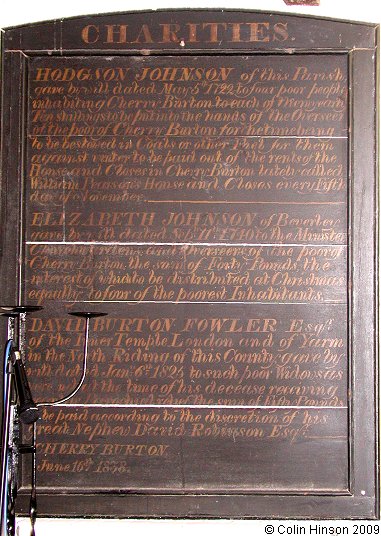 CHARITIES.
HODGSON JOHNSON of this Parish
gave by will dated May 5th 1722 to four poor people
inhabiting Cherry Burton to each of them yearly
Ten shillings to be put into the hands of the Overseer
of the poor of Cherry Burton for the time being
to be bestowed in Coals or other Fuel for them
against winter to be paid out of the rents of the
House and Closes in Cherry Burton lately called
William Pearson's House and Closes every fifth
day of November.
ELIZABETH JOHNSON of Beverley
gave by will dated 11th 1740 to the Minister
Churchwardens and Overseers of the poor of
Cherry Burton the sum of Forty Pounds the
interest of which to be distributed at Christmas
equally to four of the poorest Inhabitants.
DAVID BURTON FOWLER Esqr.
of the Inner Temple London and of Yarm
in the North Riding of this County gave by
will dated Jany. 6th 1824 to such poor Widows as
were at the time of his decease residing
the sum of Fifty Pounds
to be paid according to the discretion of his
Great Nephew David Robinson Esqr.
CHERRY BURTON.
June 16th 1858.
© Colin Hinson 2009